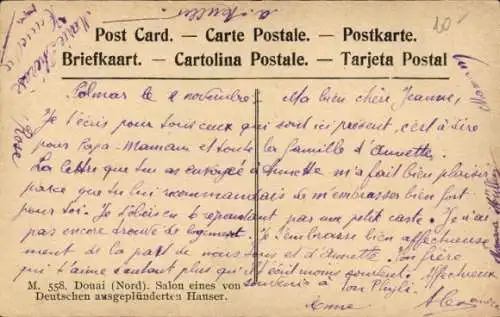 Post Card. — Carte Postale. — Postkarte.
Briefkaart. — Cartolina Postale. — Tarjeta Postal
Marie-Thérèse
Rose
Colmar le 2 novembre. Ma bien chère Jeanne,
Je t'écris pour tous ceux qui sont ici présent, c'est à dire
pour Papa-Maman et toute la famille d'Annette.
La lettre que tu as envoyée à Annette m'a fait bien plaisir
parce que tu lui recommandais de m'embrasser bien fort
pour toi. Je t'obéis en répondant par une petite carte. Je n'ai
pas encore trouvé de logement. Je t'embrasse bien affectueuse
ment de la part de nous tous et d'Annette. Ton frère
qui t'aime autant plus qu'il t'écrit moins souvent. Affectueux
souvenir à ton
Anne
M. 558. Douai (Nord). Salon eines von
Deutschen ausgeplünderten Hauser.